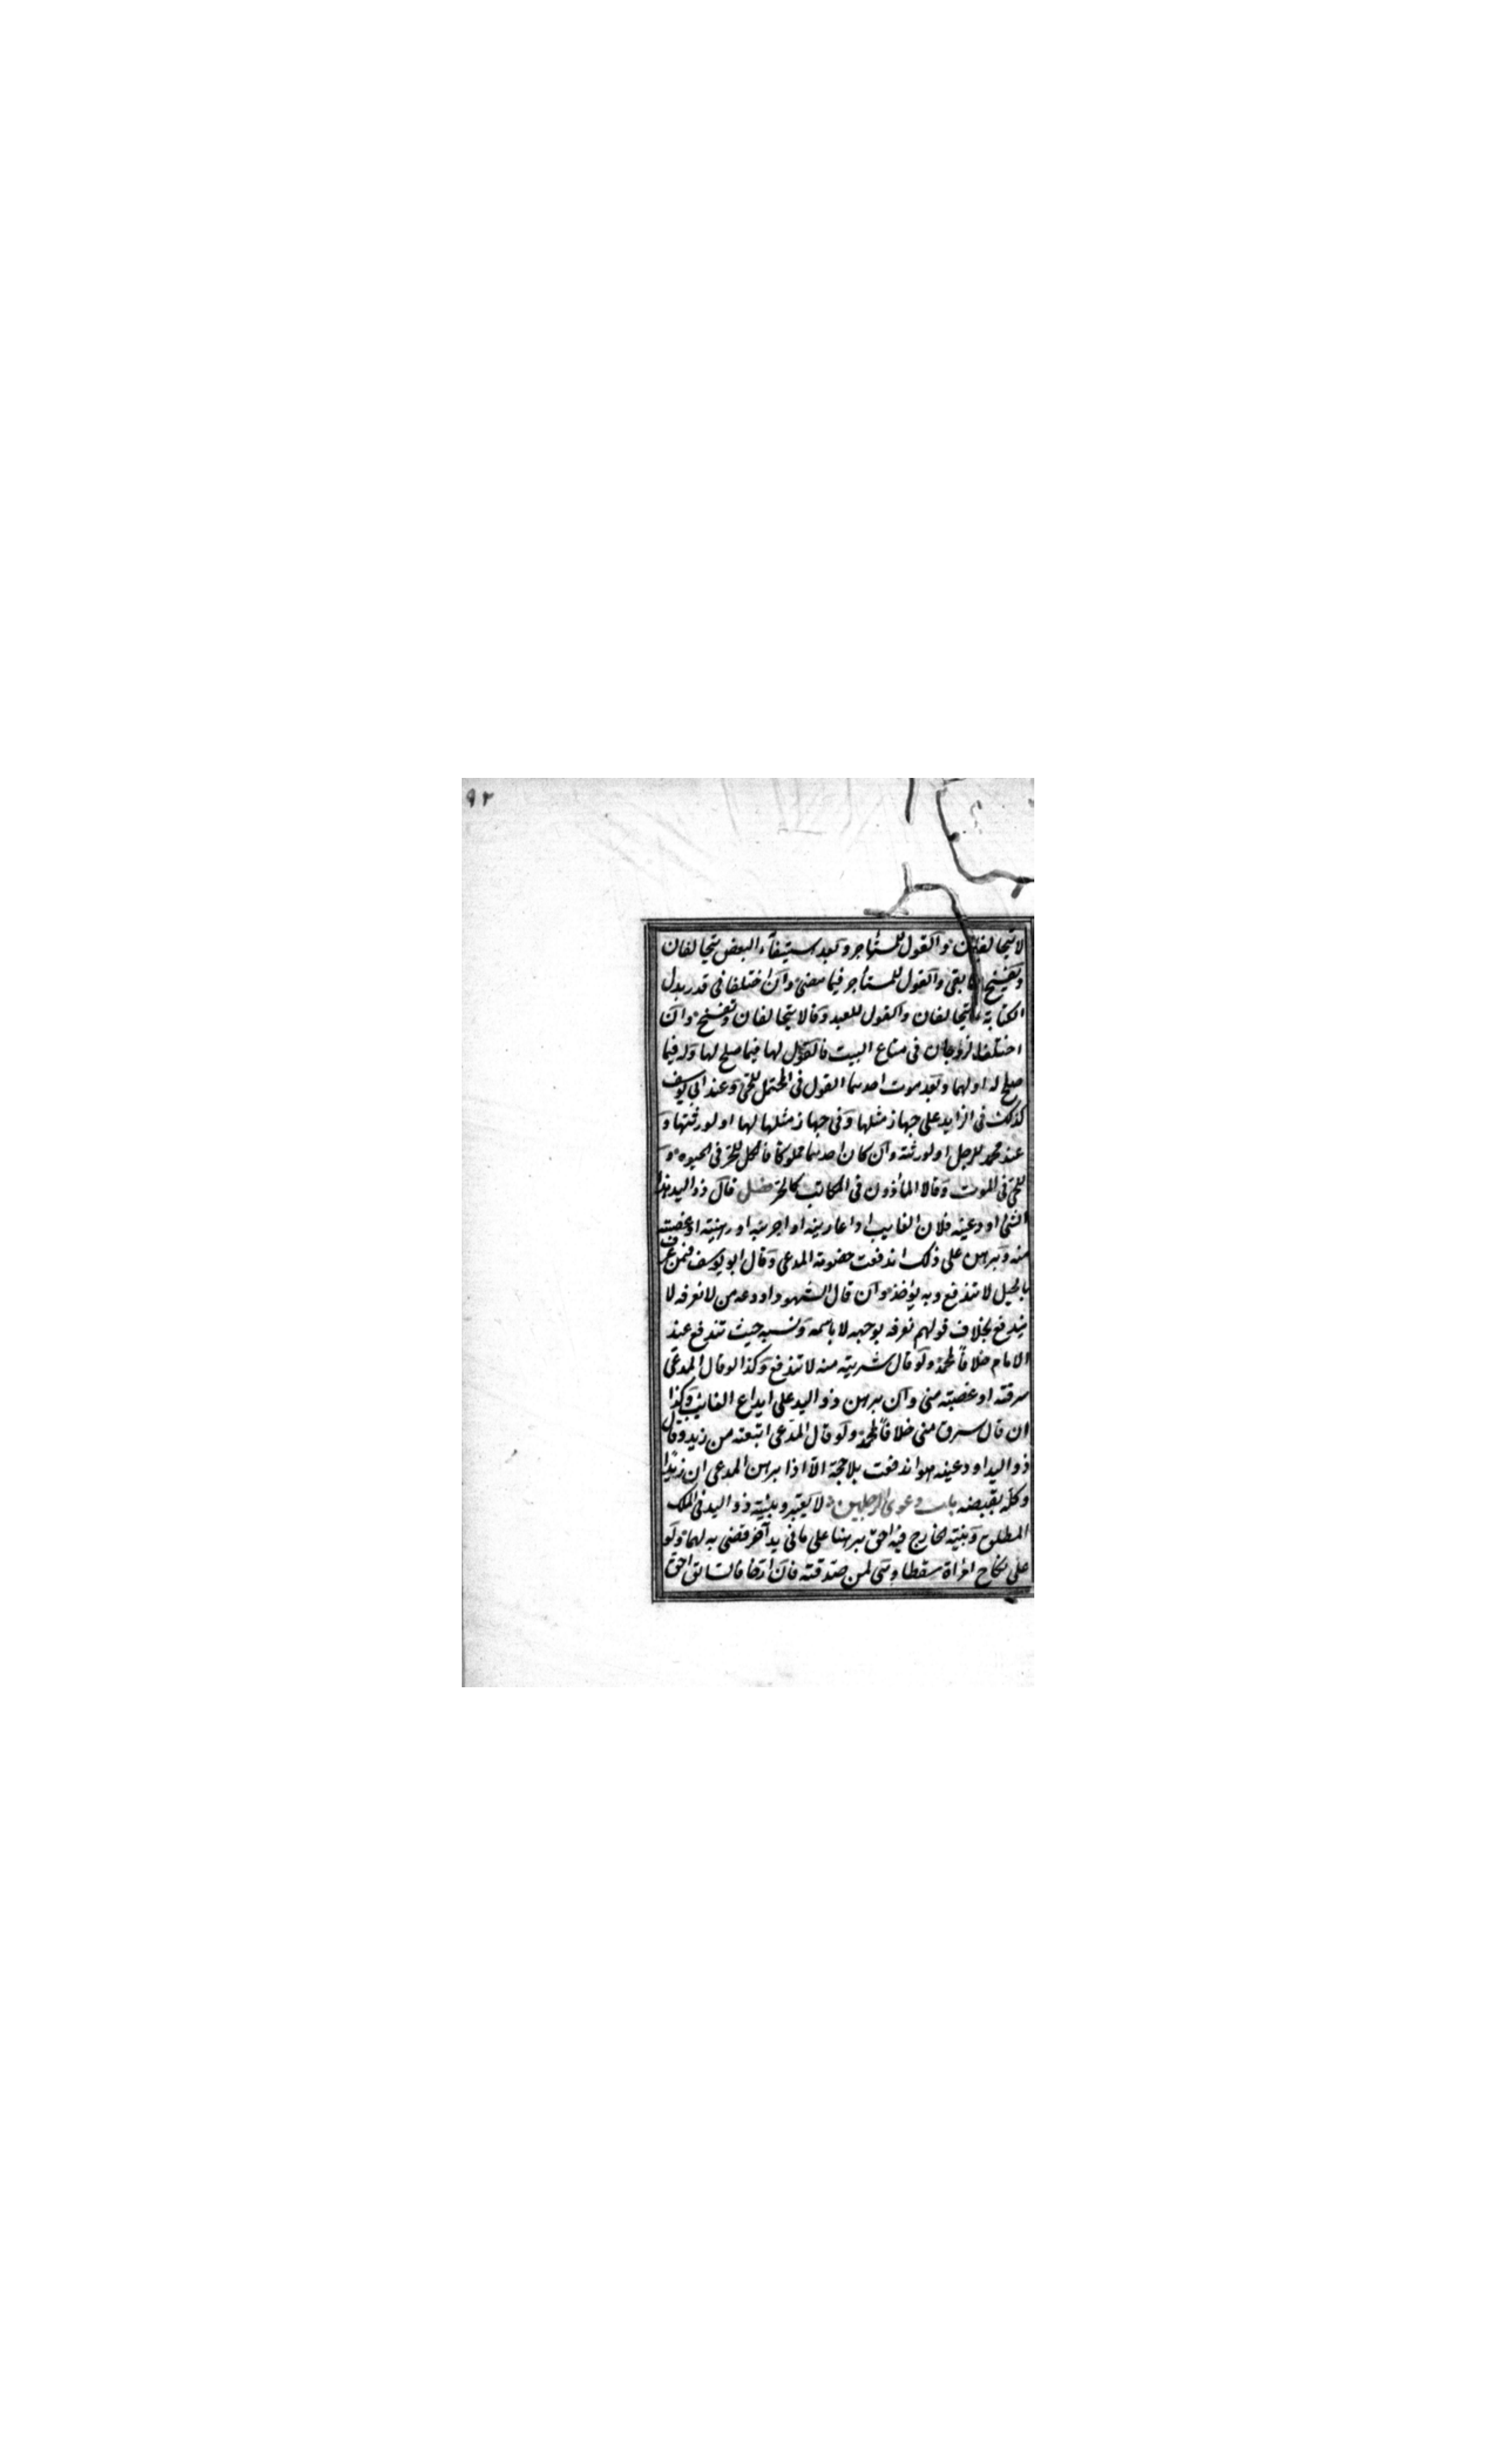 ٩٢
لا يتحالفان والقول للمستأجر وبعد استيفاء البعض يتحالفان
وتفسخ فيما بقى والقول للمستأجر فيما مضى وان اختلفا فى قدر بدل
الكتابة لا يتحالفان والقول للعبد وقالا يتحالفان وتفسخ وان
اختلف الزوجان فى متاع البيت فالقول لها فيما صلح لها وله فيما
صلح له او لهما وبعد موت احدهما القول فى المحتمل للحى وعند ابى يوسف
كذلك فى الزايد على جهاز مثلها وفى جهاز مثلها لها او لورثتها و
عند محمد للرجل او لورثته وان كان احدهما مملوكا فالكل للحر فى الحيوه و
للحى فى الموت وقالا المأذون فى المكاتب كالحر فصل قال ذو اليد هذا
الشئ اودعنيه فلان الغايب او اعارنيه او اجرنيه او رهنيه او غصبته
منه وبرهن على ذلك اندفعت خصومة المدعى وقال ابو يوسف فمن عرف
بالحيل لا تندفع وبه يؤخذ وان قال الشهود اودعه من لا نعرفه لا
يندفع بخلاف قولهم نعرفه بوجهه لا باسمه ونسبه حيث تندفع عند
الامام خلافاً لمحمد ولو قال شريته منه لا تندفع وكذا لو قال المدعى
سرقته او غصبته منى وان برهن ذو اليد على ايداع الغائب وكذا
ان قال سرق منى خلافاً لمحمد ولو قال المدعى ابتعته من زيد وقال
ذو اليد اودعنيه هو اندفعت بلا حجة الا اذا برهن المدعى ان زيدا
وكله بقبضه باب دعوى الرجلين لا يعتبر وبينة ذو اليد فى الملك
المطلق وبينة الخارج فيه احق برهنا على ما فى يد آخر قضى به لهما ولو
على نكاح امرأة سقطا وهى لمن صدقته فان ارخا فالسابق احق